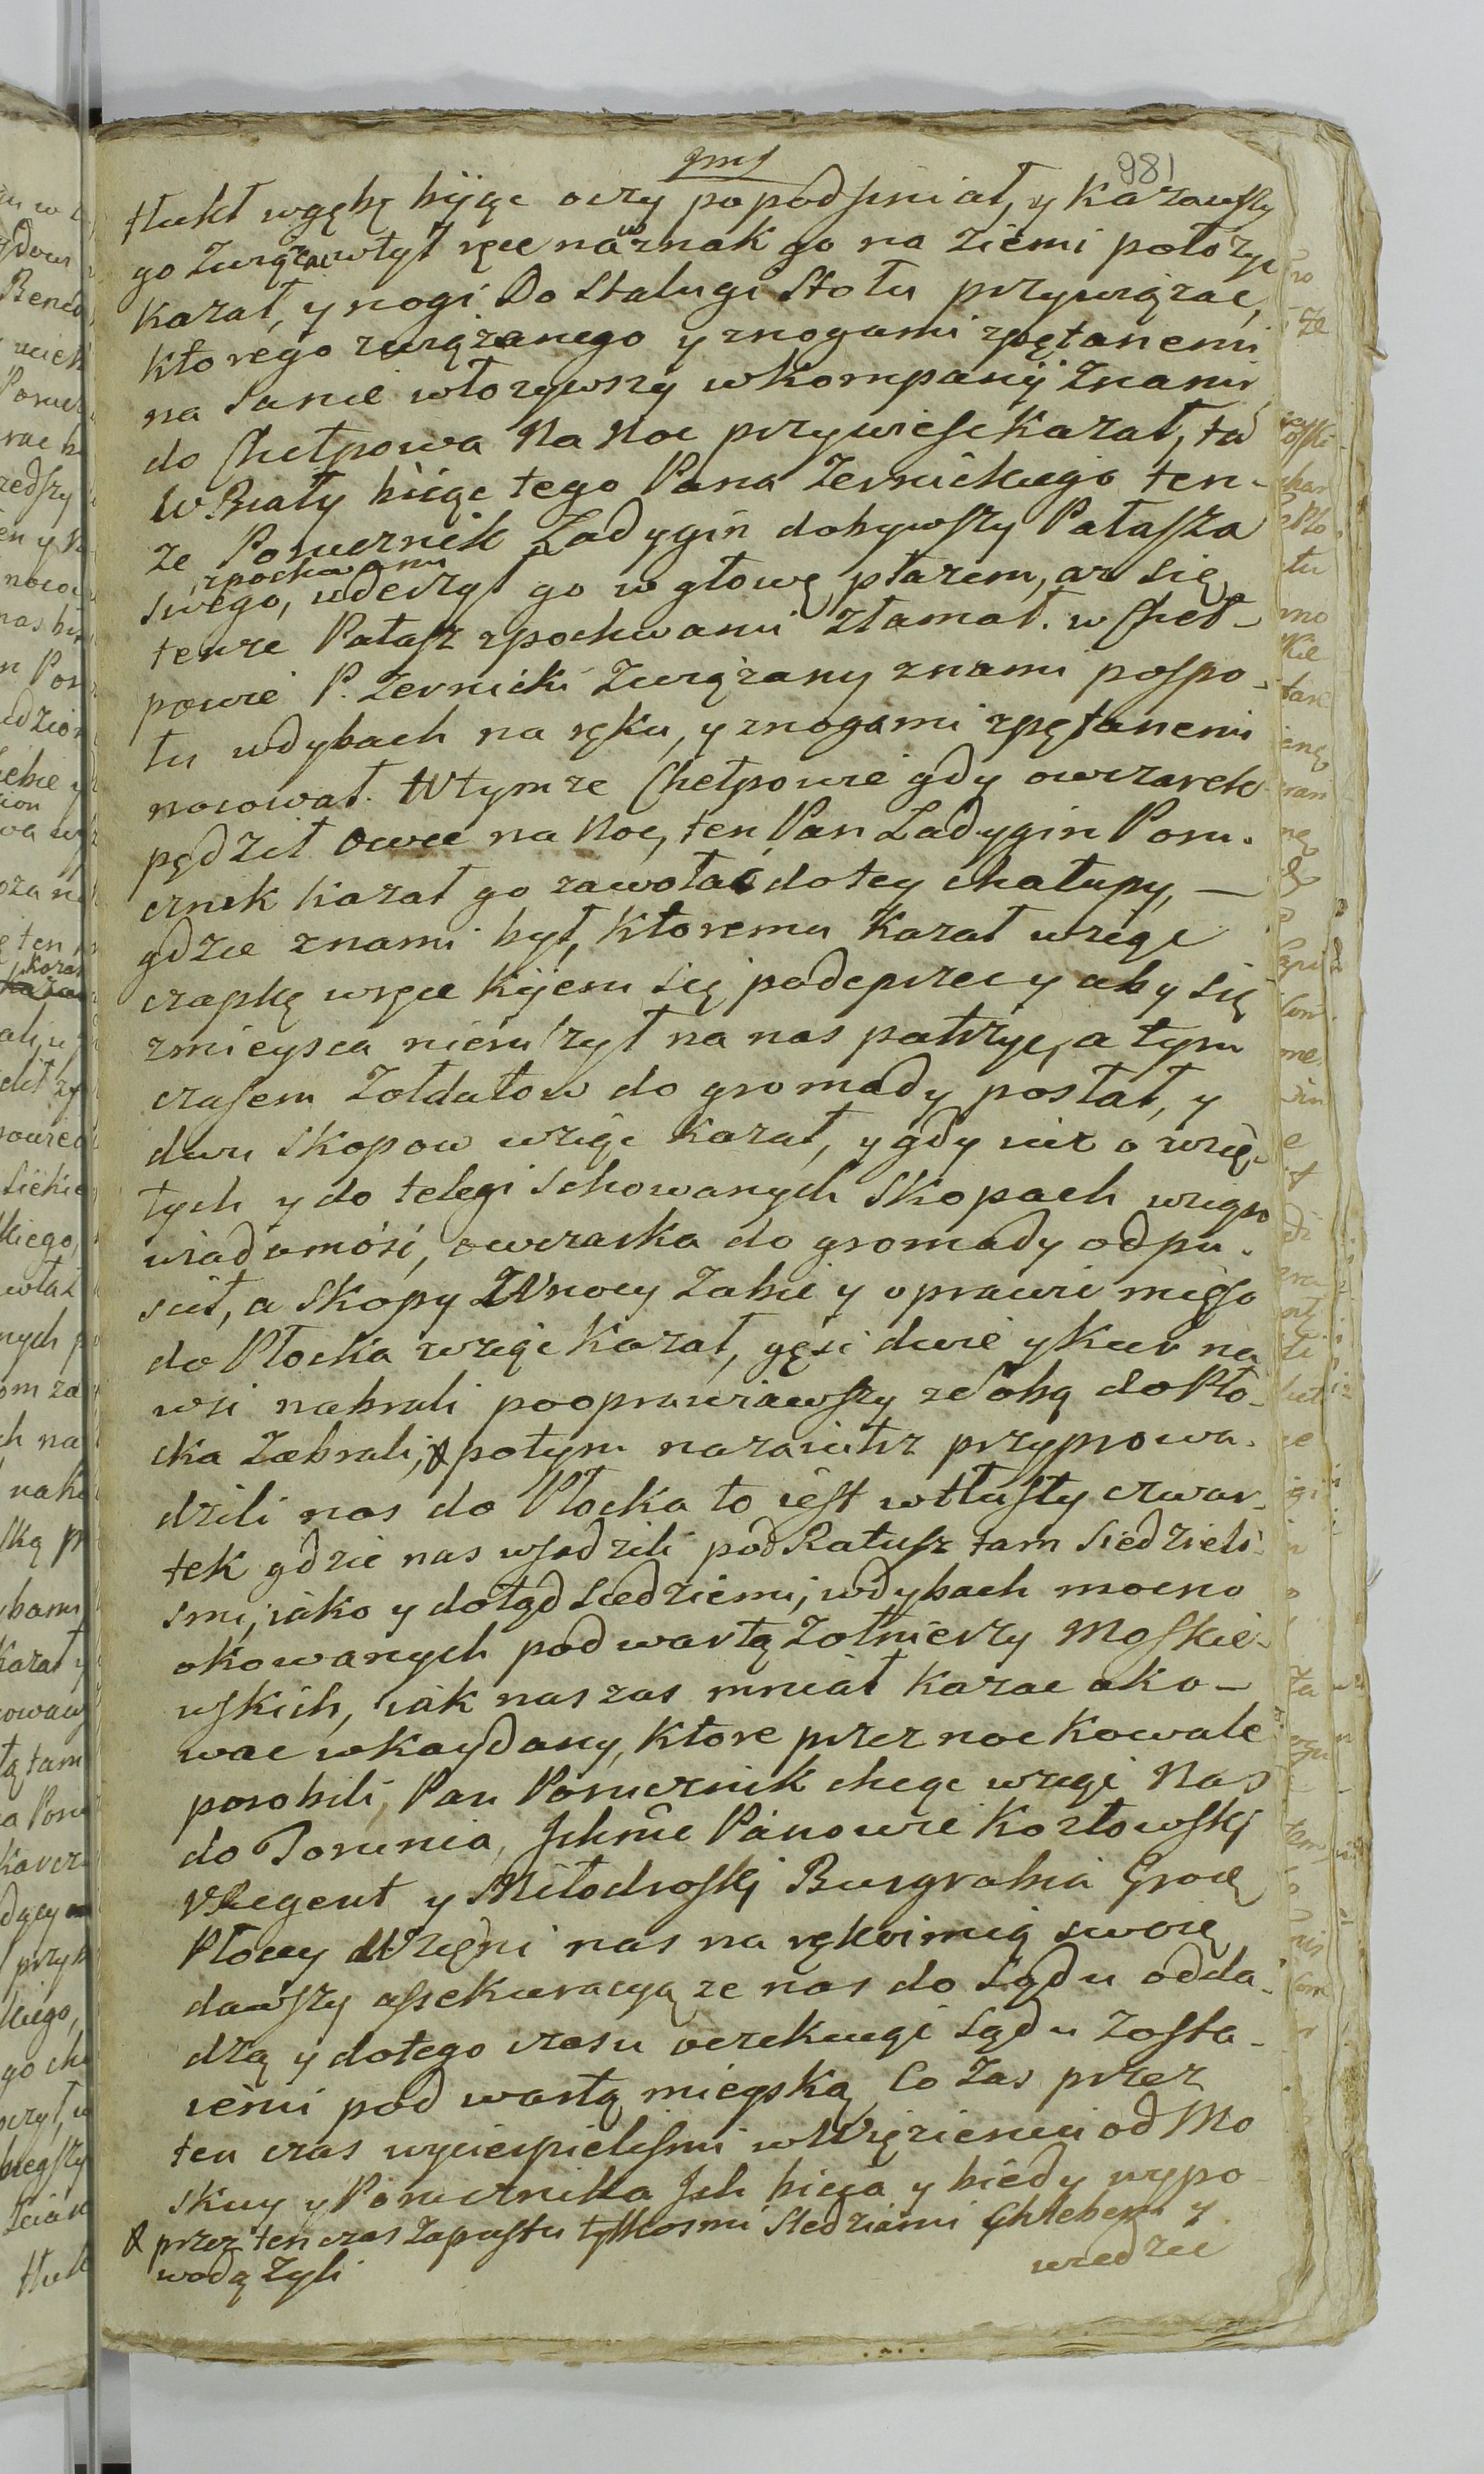 981
tłukł wgębę bijąc oczy popodsiniał, y kazawszy
go związac wtył ręce nawznak go na ziemi położyc
kazał, y nogi do stalugi stołu przywiązac,
ktorego związanego y znogami spętanemi
na sanie włozywszy wkompanij znami
do Chełpowa na Noc przywiesc kazał, ta
W Biały bijąc tego Pana Zernickiego ten-
ze Porucznik Ładygin dobywszy Pałasza
zpochwami
swego, uderzył go w głowę płazem, az się
tenze Pałasz zpochwami złamał. w Cheł-
powie P. Zernicki związany znami pospo-
łu wdybach na ręku, y znogami spętanemi
nocował. Wtymze Chełpowie gdy owczarek
pędził owce na Noc, ten Pan Ładygin Poru-
cznik kazał go zawołać do tey chałupy, —
gdzie znami był, ktoremu kazał wziąć
czapkę wręce kijem się podeprzec y aby się
zmieysca nieruszył na nas patrzyc, a tym
czasem Zołdatow do gromady posłał, y
dwu skopow wziąc kazał, y gdy iuz o wzię-
tych y do telegi schowanych skopach wziął
wiadomość, owczarka do gromady odpu-
scił, a skopy W nocy zabic y oprawic mięso
do Płocka wziąc kazał, gęsi dwie y kur na
wsi nabrali pooprawiawszy ze sobą do Pło-
cka zabrali, & potym nazaiutrz przyprowa-
dzili nas do Płocka to iest wtłusty czwar-
tek gdzie nas wsadzili pod Ratusz tam siedzieli-
smi, iako y dotąd siedziemi, wdybach mocno
okowanych pod wartą Zołnierzy Moskie-
wskich, iak nas zas mniał kazac oko-
wac wkaydany, ktore przez noc kowale
porobili, Pan Porucznik chcąc wziąc Nas
do Torunia, Ichmc Panowie Kozłowskj
VRegent y Miłodroskj Burgrabia Grodz
Płoccy Wzięni nas na rękoimią swoię
dawszy assekuracyą ze nas do Sądu odda-
dzą y dotego czasu oczekuiąc Sądu zosta-
iemi pod wartą mieyską, Co zas przez
ten czas wycierpielismi wWięzieniu od Mo
skwy y Porucznika Ich bicia y biedy wypo-
wiedziec
& przez ten czas zapustu tylkosmi sledziami Chlebem y
wodą zyli